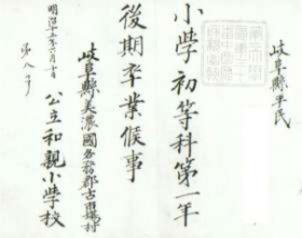 岐阜縣平民
小學初等科第一年
後期卒業候事
岐阜縣美濃國各務郡古市場村
公立和親小學校
明治十五年六月十日
第八号